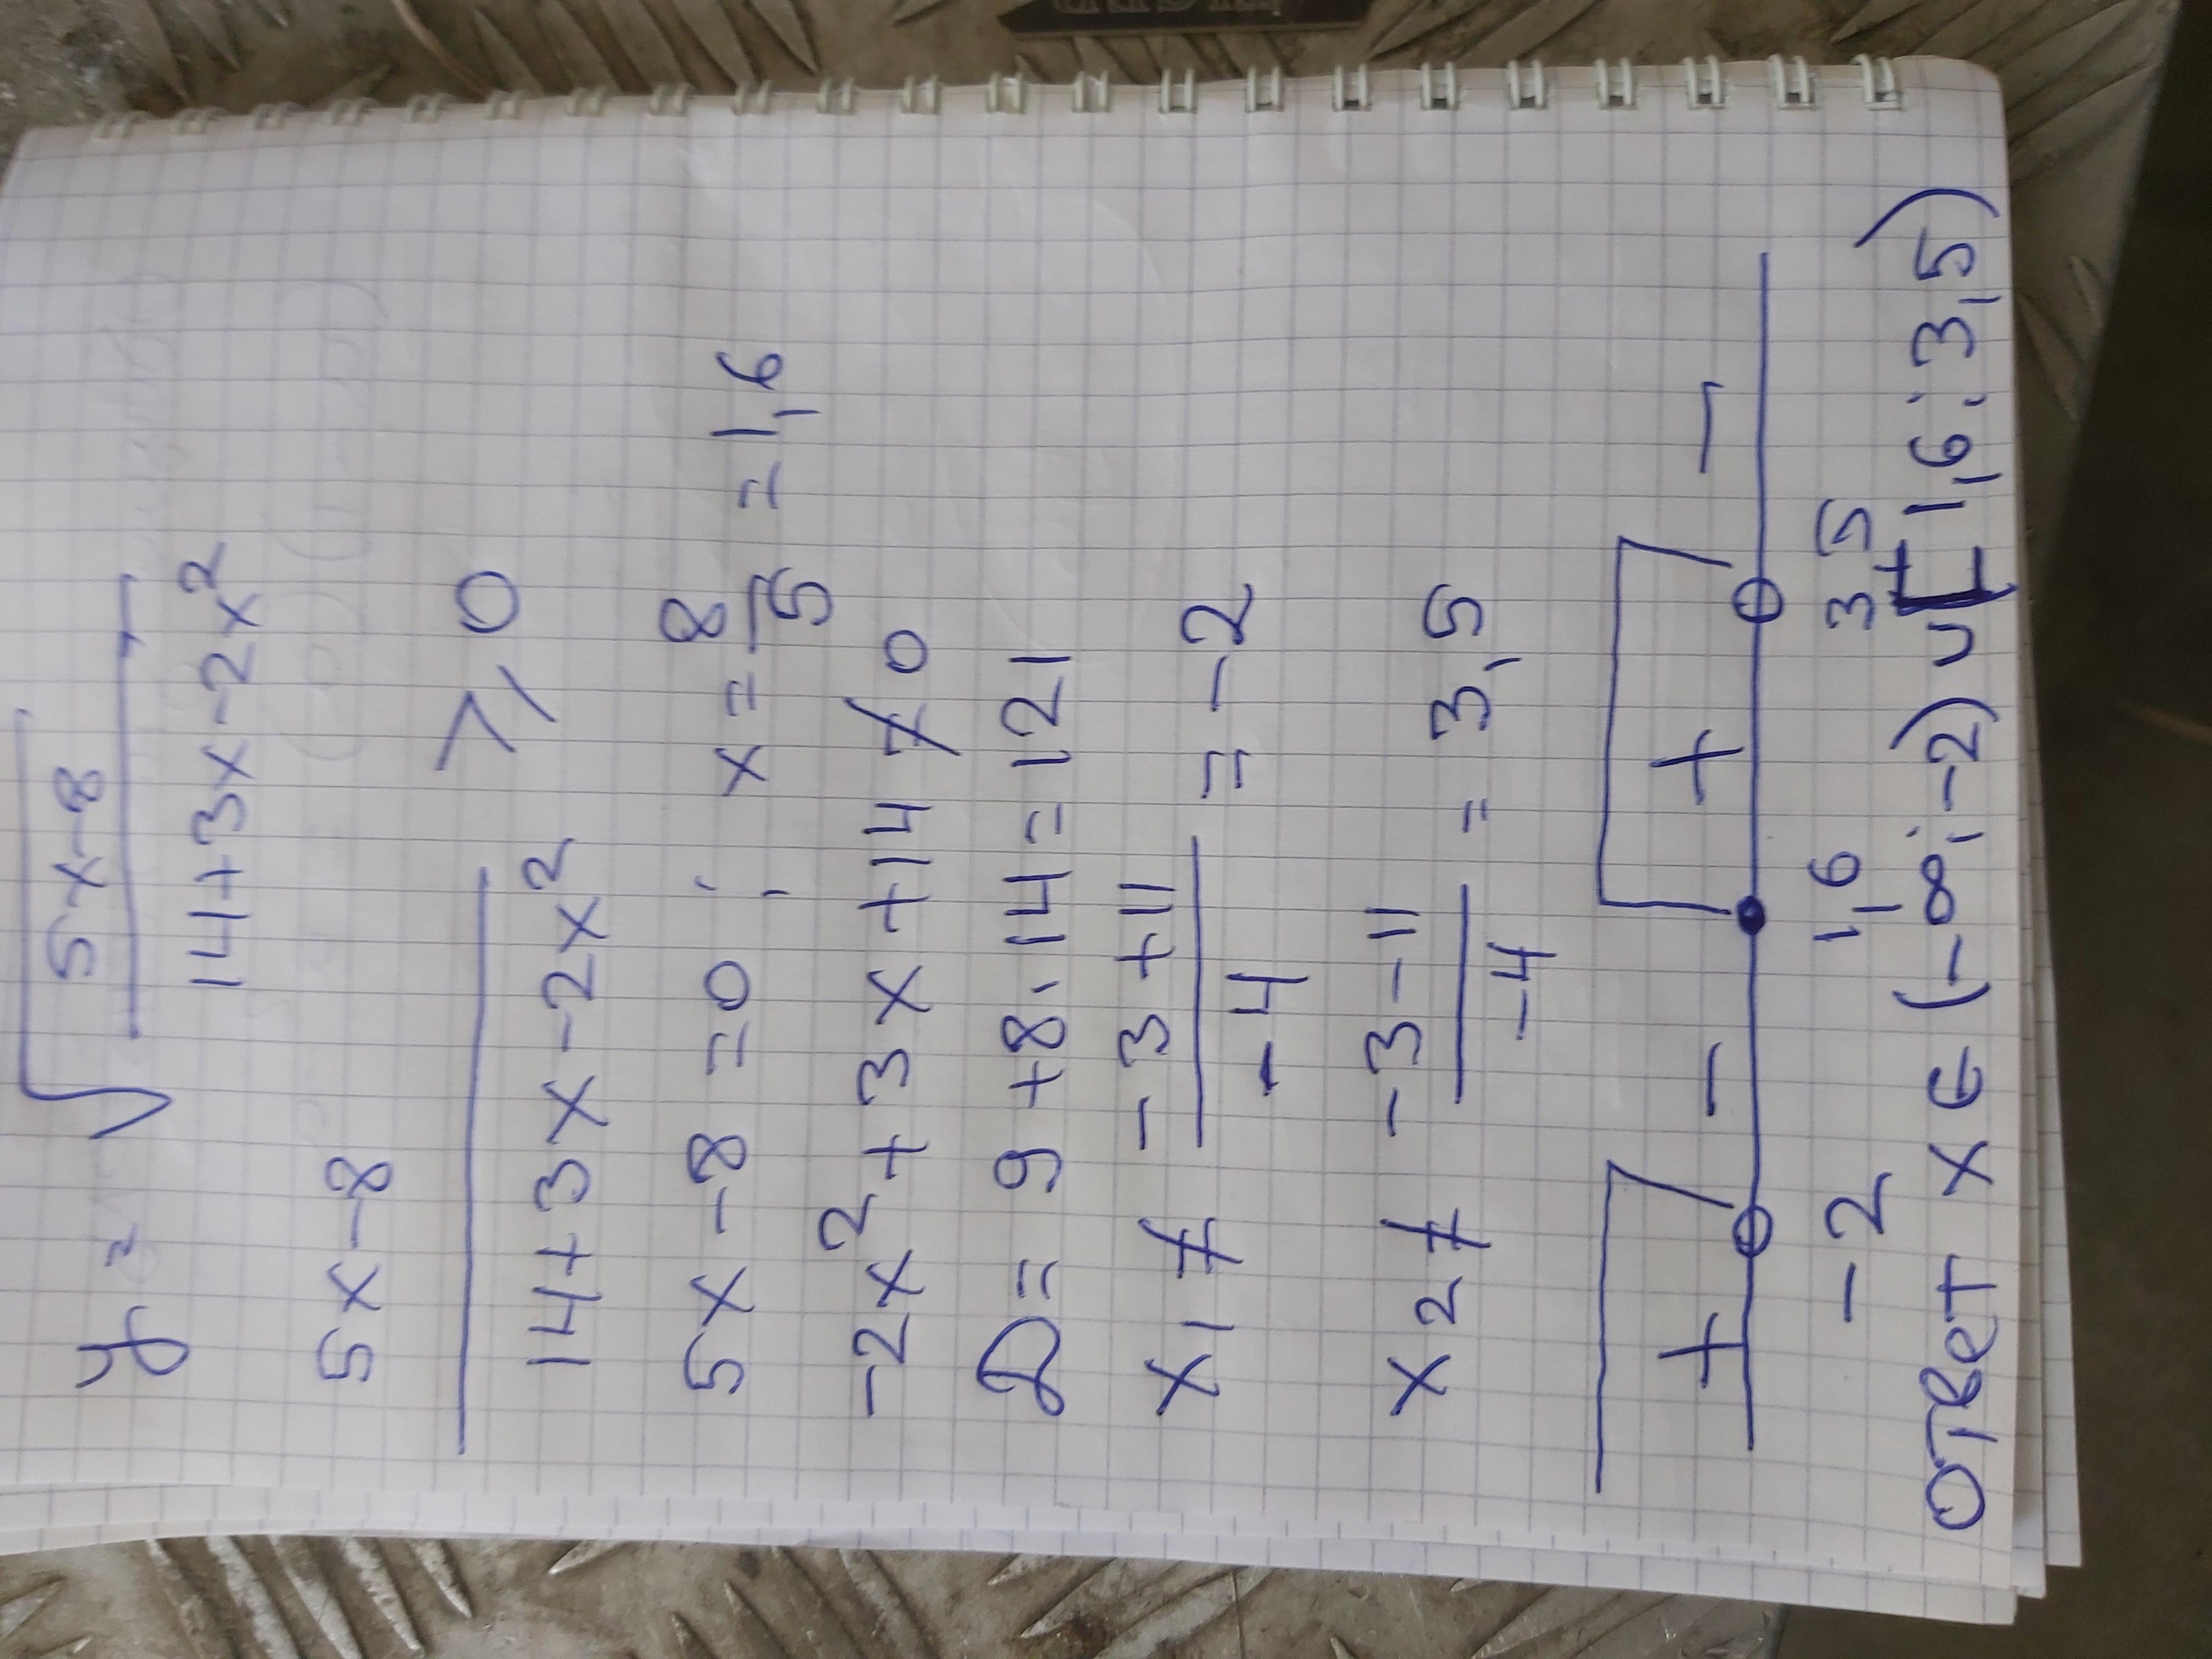 y = √(5x-8 / 14+3x-2x²)
5x-8
—————— ⩾ 0
14+3x-2x²
5x-8=0; x=8/5=1,6
-2x²+3x+14≠0
D= 9+8·14=121
x1≠ -3+11/-4 = -2
x2≠ -3-11/-4 = 3,5
+ - + -
-2 1,6 3,5
ответ x∈(-∞;-2)∪[1,6;3,5)